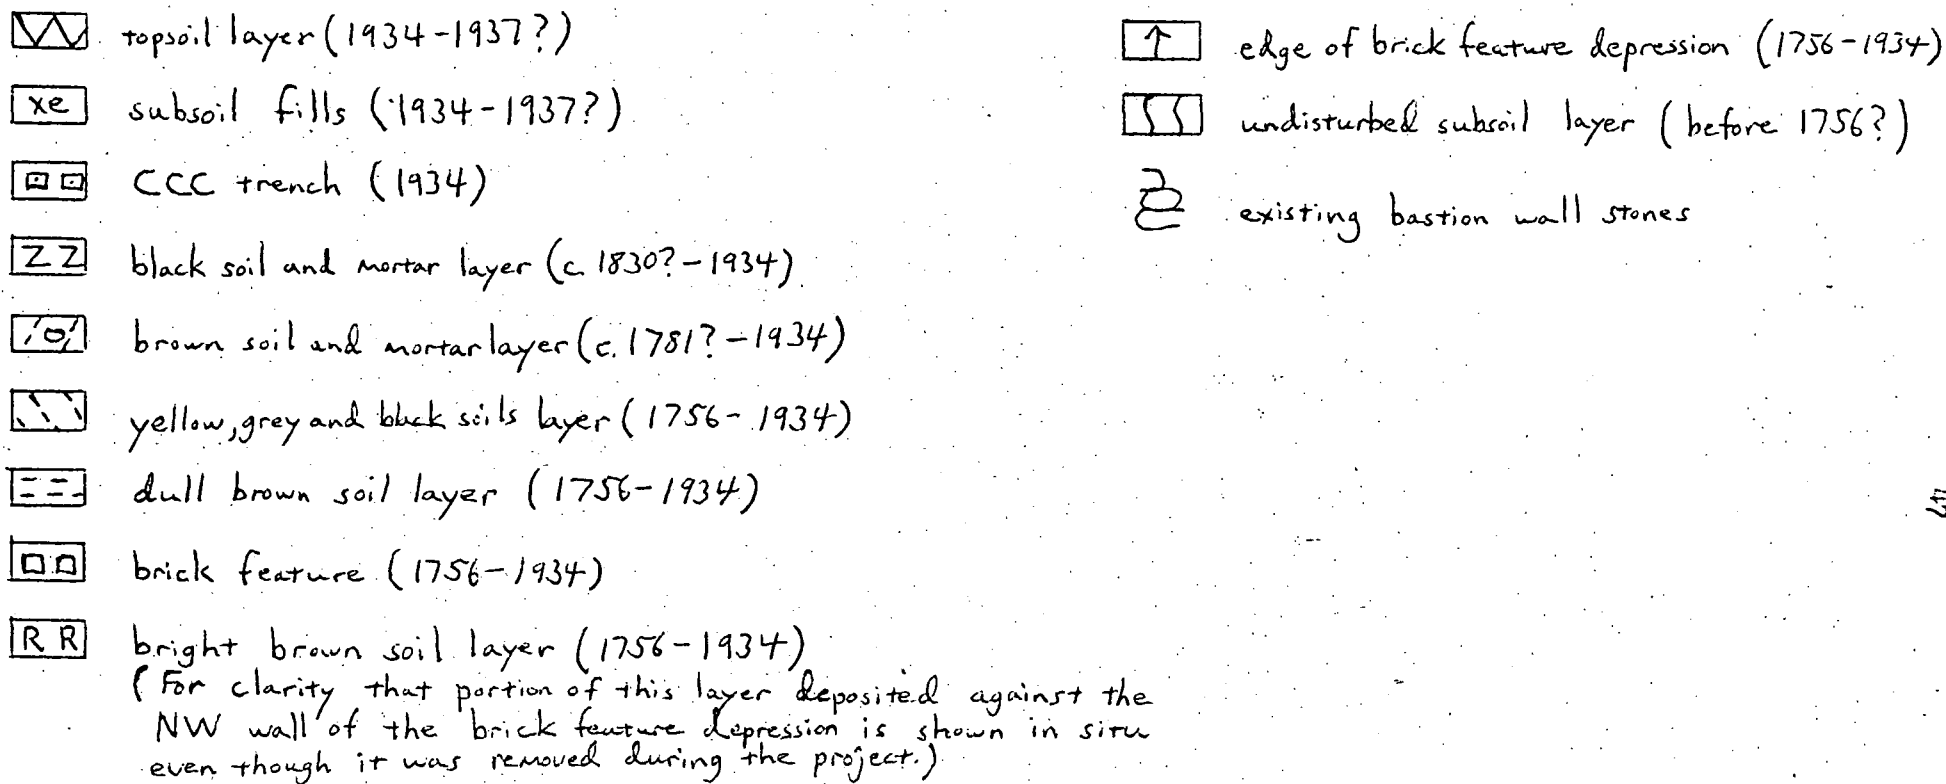 topsoil layer (1934-1937?)
xe subsoil fills (1934-1937?)
CCC trench (1934)
ZZ black soil and mortar layer (c. 1830?-1934)
brown soil and mortar layer (c. 1781?-1934)
yellow, grey and black soils layer (1756-1934)
dull brown soil layer (1756-1934)
brick feature (1756-1934)
R R bright brown soil layer (1756-1934)
(For clarity that portion of this layer deposited against the
NW wall of the brick feature depression is shown in situ
even though it was removed during the project.)
edge of brick feature depression (1756-1934)
undisturbed subsoil layer (before 1756?)
existing bastion wall stones